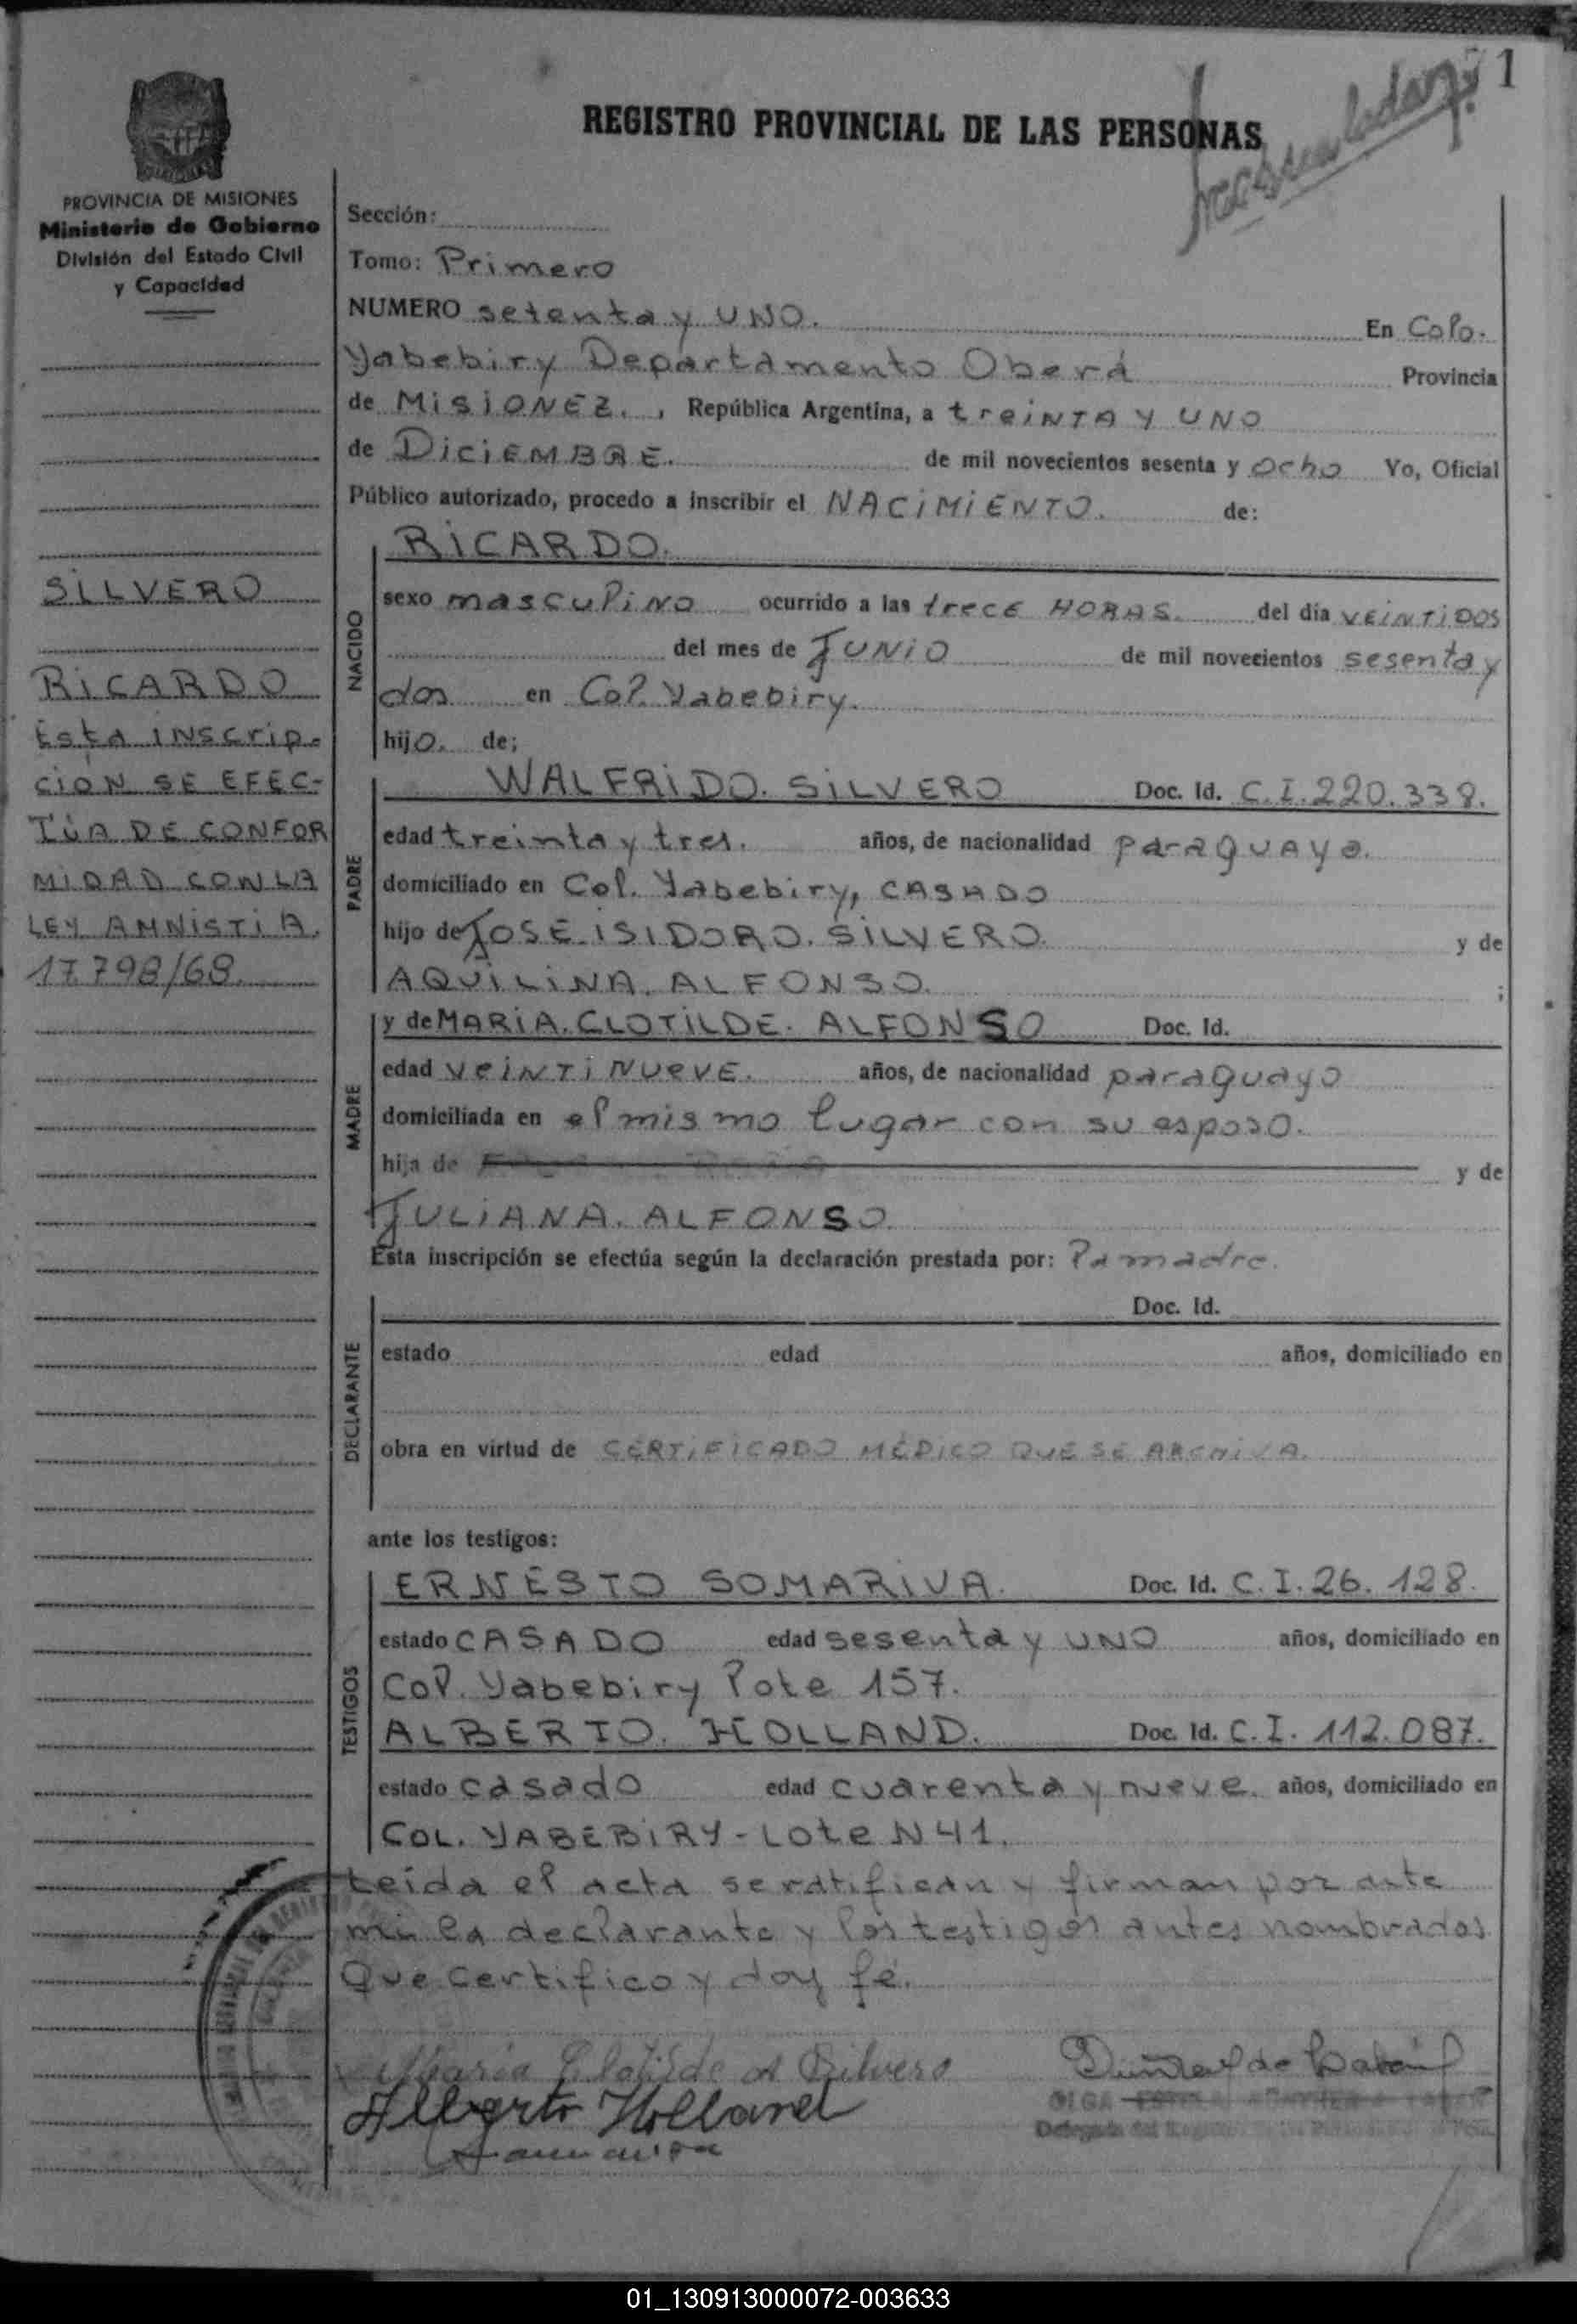 71
REGISTRO PROVINCIAL DE LAS PERSONAS
PROVINCIA DE MISIONES
Ministerio de Gobierno
División del Estado Civil
y Capacidad
SILVERO
RICARDO
Esta INSCrip-
CIÓN SE EFEC-
TÚA DE CONFOR
MIDAD CON LA
LEY AMNISTIA.
17.798/68.
Sección:
Tomo: Primero
NUMERO setenta y UNO. En Colo.
Yabebiry Departamento Oberá Provincia
de MISIONEZ. , República Argentina, a treINTA Y UNO
de DICIEMBRE. de mil novecientos sesenta y ocho Yo, Oficial
Público autorizado, procedo a inscribir el NACIMIENTO. de:
NACIDO
RICARDO.
sexo masculino ocurrido a las trece HORAS. del día VEINTIDOS
del mes de JUNIO de mil novecientos sesenta y
dos en Col. Yabebiry.
hijo. de;
PADRE
WALFRIDO. SILVERO Doc. Id. C.I. 220.338.
edad treinta y tres. años, de nacionalidad paraguayo.
domiciliado en Col. Yabebiry, CASADO
hijo de JOSÉ ISIDORO. SILVERO. y de
AQUILINA. ALFONSO. ;
MADRE
y de MARIA. CLOTILDE. ALFONSO Doc. Id.
edad VEINTINUEVE. años, de nacionalidad paraguayo
domiciliada en el mismo lugar con su esposo.
hija de y de
JULIANA. ALFONSO.
Esta inscripción se efectúa según la declaración prestada por: la madre.
DECLARANTE
Doc. Id.
estado edad años, domiciliado en
obra en virtud de CERTIFICADO MÉDICO QUE SE ARCHIVA.
ante los testigos:
TESTIGOS
ERNESTO SOMARIVA. Doc. Id. C.I. 26.128.
estado CASADO edad sesenta y UNO años, domiciliado en
Col. Yabebiry lote 157.
ALBERTO. HOLLAND. Doc. Id. C.I. 112.087.
estado casado edad cuarenta y nueve. años, domiciliado en
COL. YABEBIRY - Lote N 41.
Leída el acta se ratifican y firman por ante
mi la declarante y los testigos antes nombrados
Que certifico y doy fé.
Maria Clotilde A Silvero
Alberto Holland
OLGA
Delegada del
01_130913000072-003633